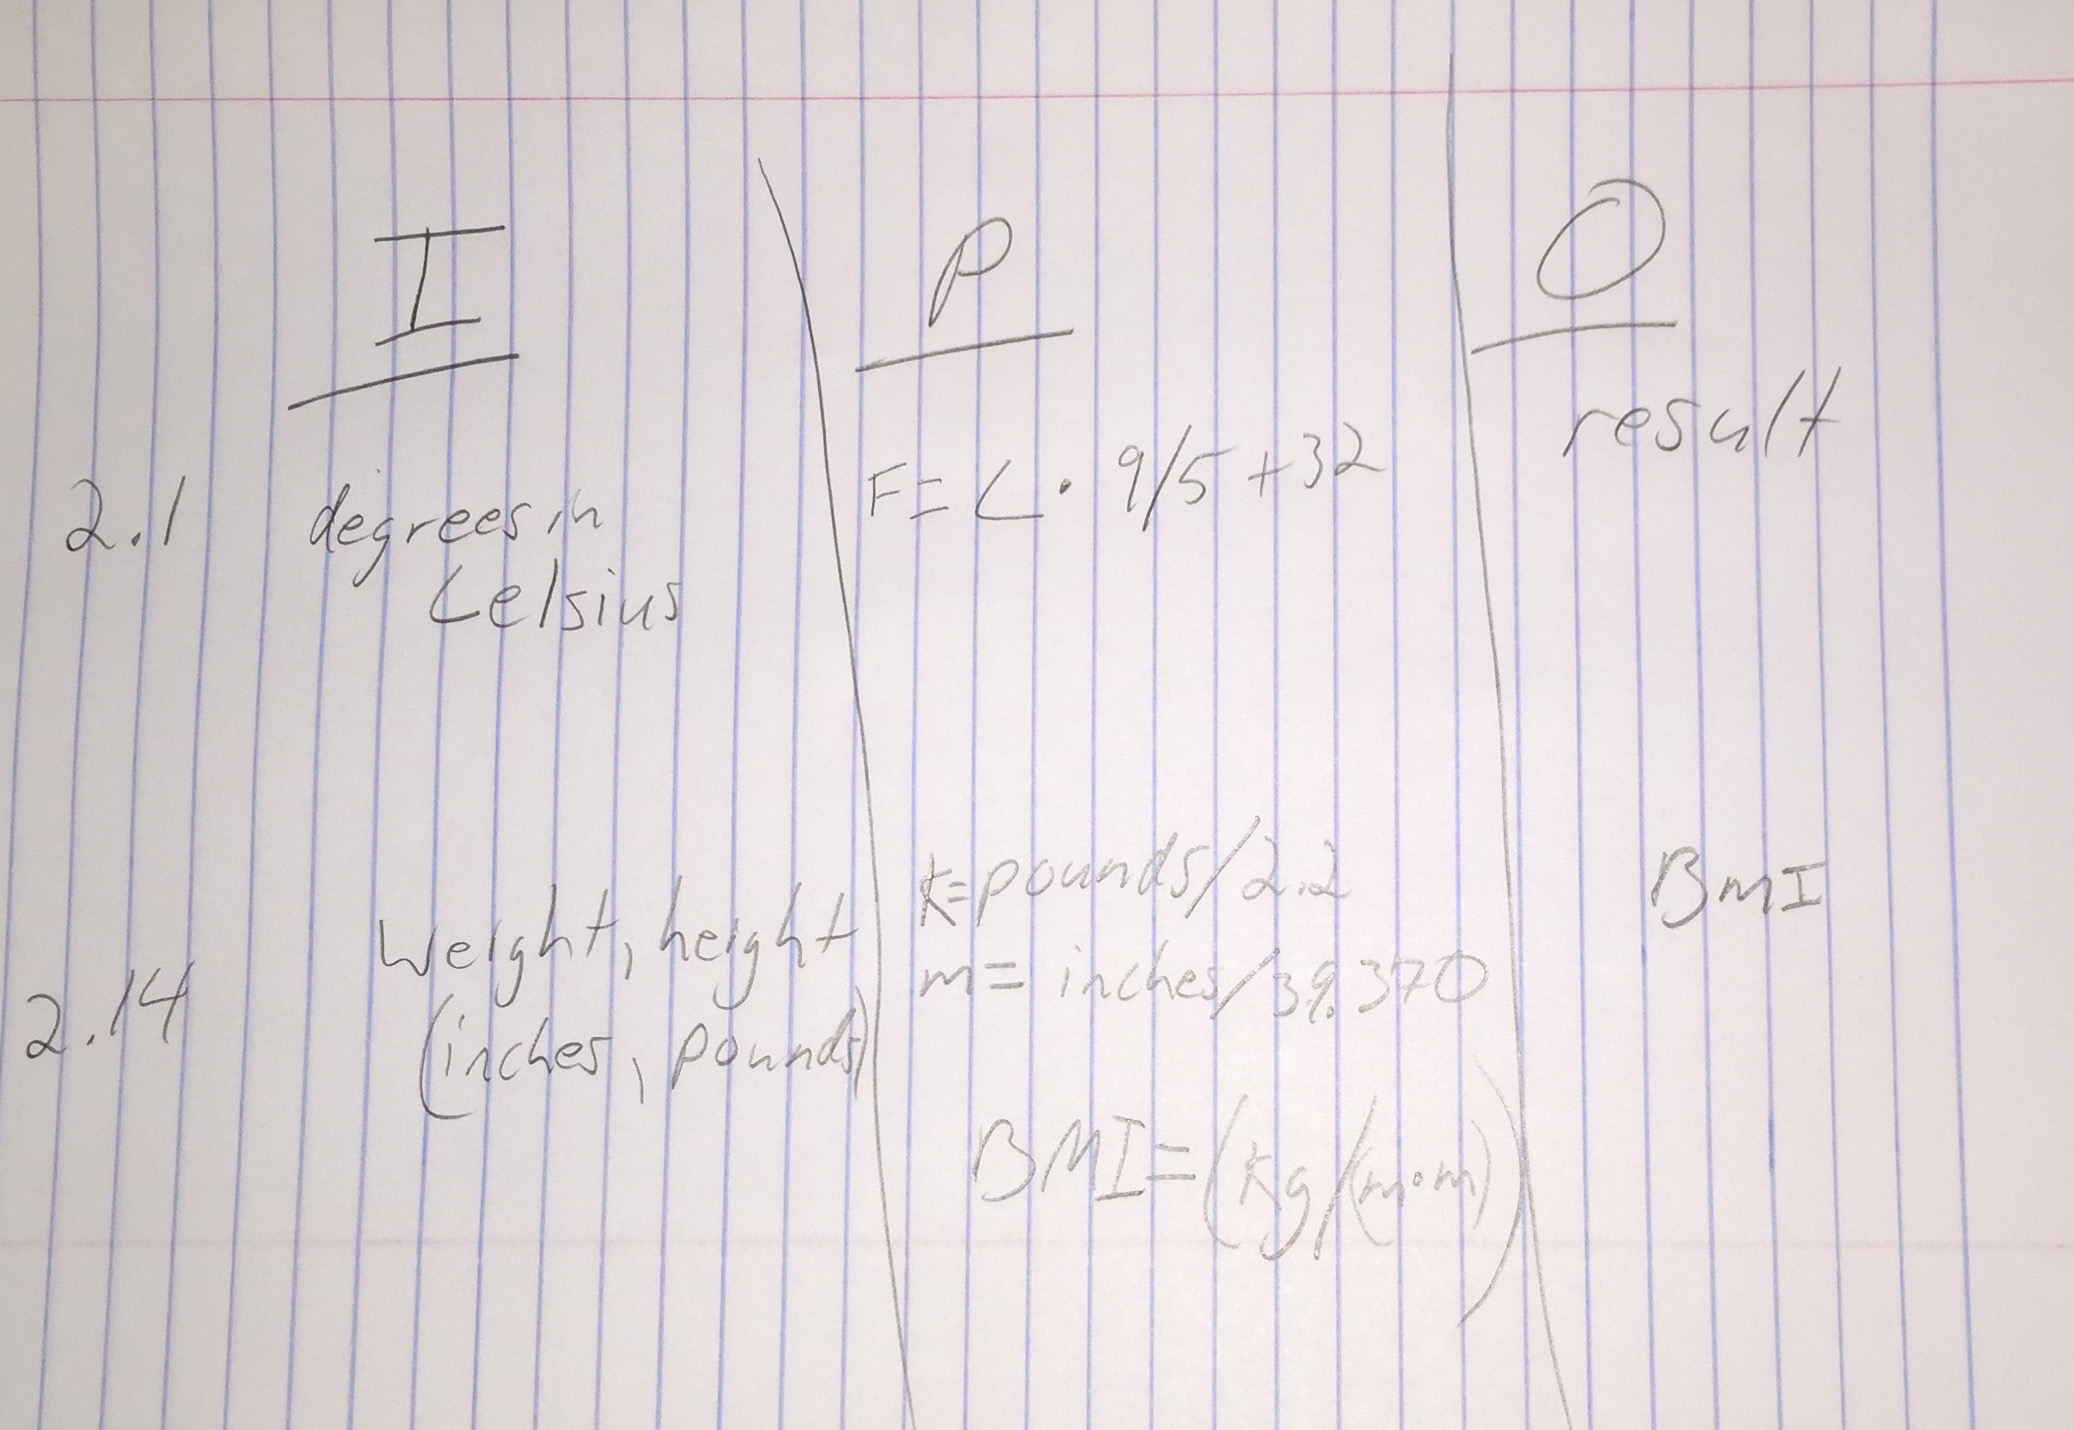 I
P
O
result
2.1
degrees in
Celsius
F= C · 9/5 +32
2.14
Weight, height
(inches, pounds)
K=pounds/2.2
m= inches/39.370
BMI=(Kg/(m·m))
BMI